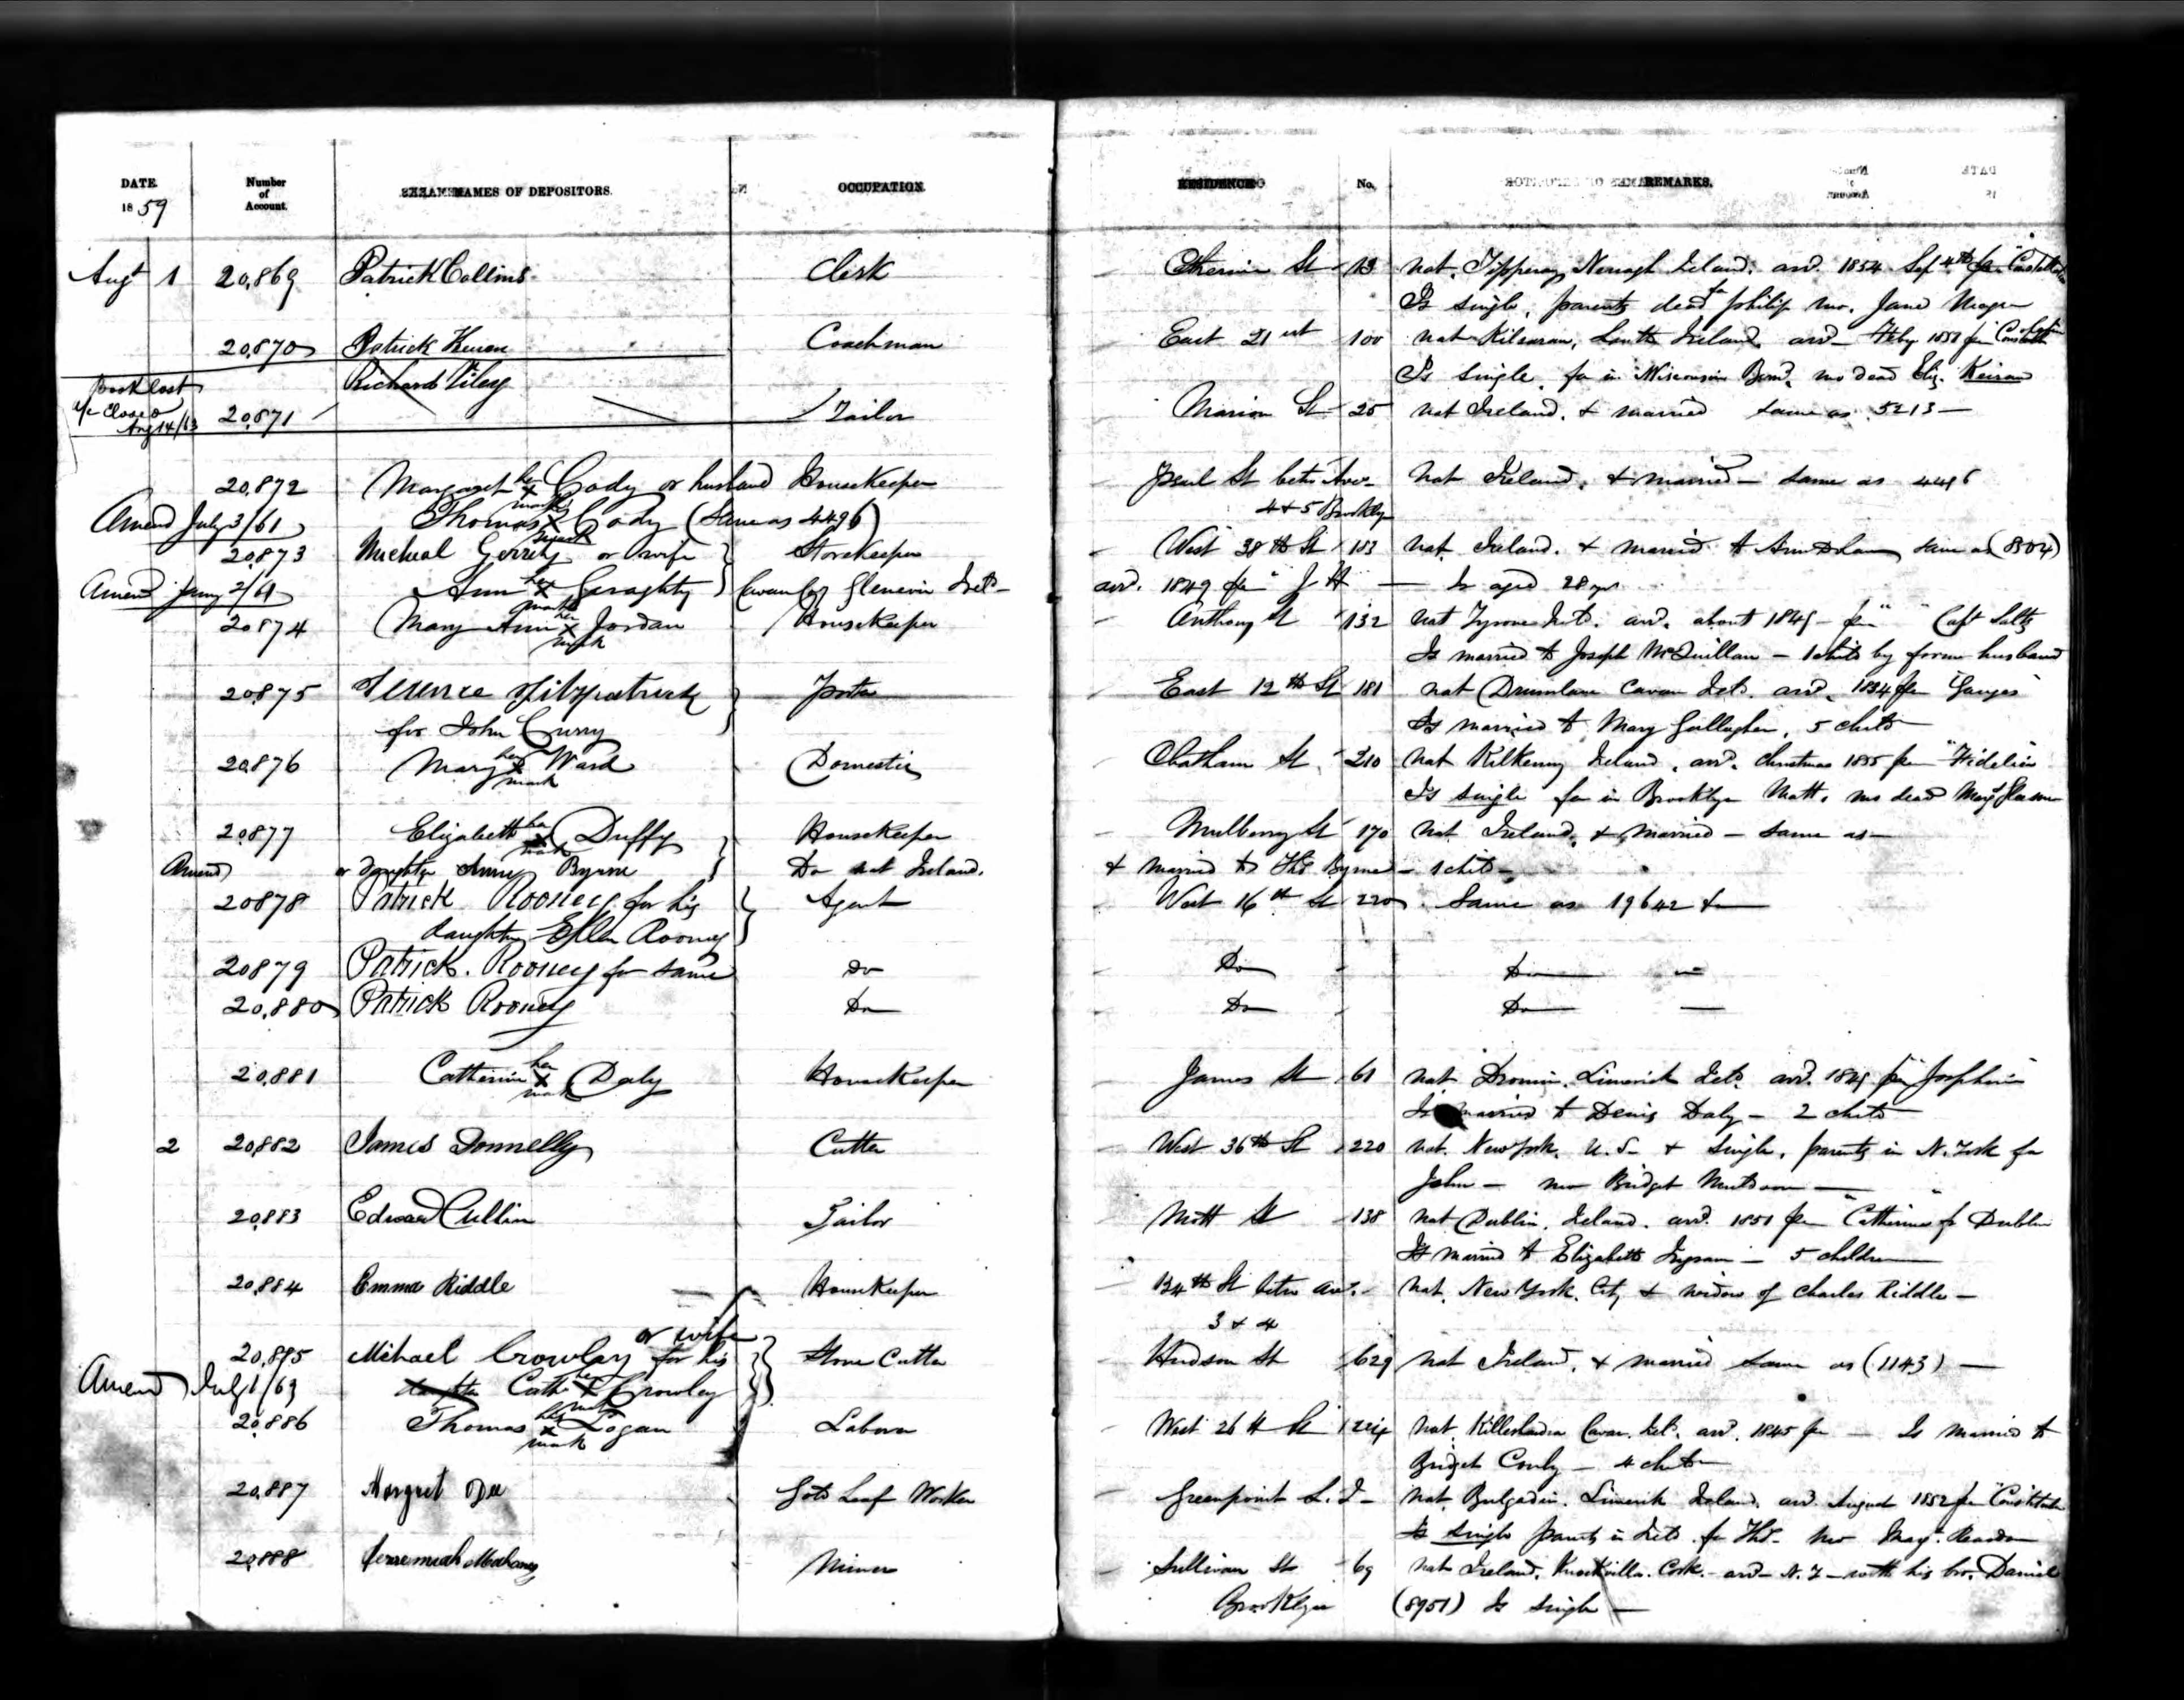 DATE 1859 Number of Account. NAMES OF DEPOSITORS. OCCUPATION. RESIDENCE No. REMARKS.
Augt 1 20,869 Patrick Collins Clerk Cherrie St 13 nat. Tipperary Nenagh Ireland. arrd. 1854 Sep 4th
Is single, parents dead fa philip mo. Jane
20,870 Patrick Coachman East 21st 100 nat Ireland, arrd Feby
Is single. fa in Wisconsin mo dead Eliz. Keiran
Book lost Richard
a/c Closed Aug 14/63 20,871 Tailor Marion St 25 nat Ireland. & married same as 5213
20,872 Margaret her x mark Cody or husband Housekeeper St betw Aves nat Ireland. & married same as 4496
4 & 5 Brooklyn
Amend July 3/61 Thomas x Cody (Same as 4496)
20,873 Micheal Gerrity or wife Storekeeper West 38th St 183 nat Ireland. & married to Ann same as (804)
Amend Jany 2/61 Ann her x mark Geraghty Cavan Co Ireld arrd. 1849 Is aged 28 yrs
20874 Mary Ann her x mark Jordan Housekeeper Anthony St 132 nat Tyrone Ireld. arrd. about 1849 pr " " Capt
Is married to Joseph McQuillan - 1 child by former husband
20875 Terence Fitzpatrick Porter East 12th St 181 nat Drumlane Cavan Ireld. arrd. pr "Ganges"
for John Curry Is married to Mary Gallagher, 5 childn
20876 Mary her x mark Ward Domestic Chatham St 210 nat Kilkenny Ireland. arrd. Christmas 1855 pr "Fidelia"
Is single fa in Brooklyn Matt. mo dead
20,877 Elizabeth her x mark Duffy Housekeeper Mulberry St 170 nat Ireland. & married - same as -
Amend or daughter Anny Byrne Do nat Ireland. & married to Ths Byrne - 1 child -
20878 Patrick Rooney for his Agent West 16th St 220 Same as 19642
daughter Ellen Rooney
20879 Patrick. Rooney for same Do Do Do
20,880 Patrick Rooney Do Do Do
20,881 Catherine her x mark Daly Housekeeper James St 61 nat Dromin. Limerick Ireld. arrd. 1849 pr "Josephine"
Is married to Denis Daly - 2 childn
2 20,882 James Donnelly Cutter West 36th St 220 nat. New York. U.S. & single. parents in N. York fa
John - mo Bridget
20,883 Edward Cullin Tailor Mott St 138 nat Dublin. Ireland. arrd. 1851 pr "Catherine" fr Dublin
Is married to Elizabeth - 5 children
20,884 Emma Riddle Housekeeper 124th St betw aves nat. New York. City & widow of Charles Riddle -
3 & 4
or wife
20,885 Michael Crowley for his Stone Cutter Hudson St 629 nat Ireland. & married same as (1143)
Amend July 1/63 daughter Cath her x mark Crowley
20,886 Thomas his x mark Logan Laborer West 26th St nat Killeshandra Cavan. Ireld. arrd. 1845 pr - Is married to
Bridget - 4 childn
20,887 Margret Dee Gold Leaf Worker Greenpoint L. I nat. Bulgadin. Limerick Ireland. arrd August 1852 pr "Constitution"
Is single parents in Ireld. fa Ths - mo Margt
20,888 Jerremiah Mahoney Miner Sullivan St 69 nat Ireland. Cork. arrd N. Y - with his bro. Daniel
Brooklyn (8951) Is single